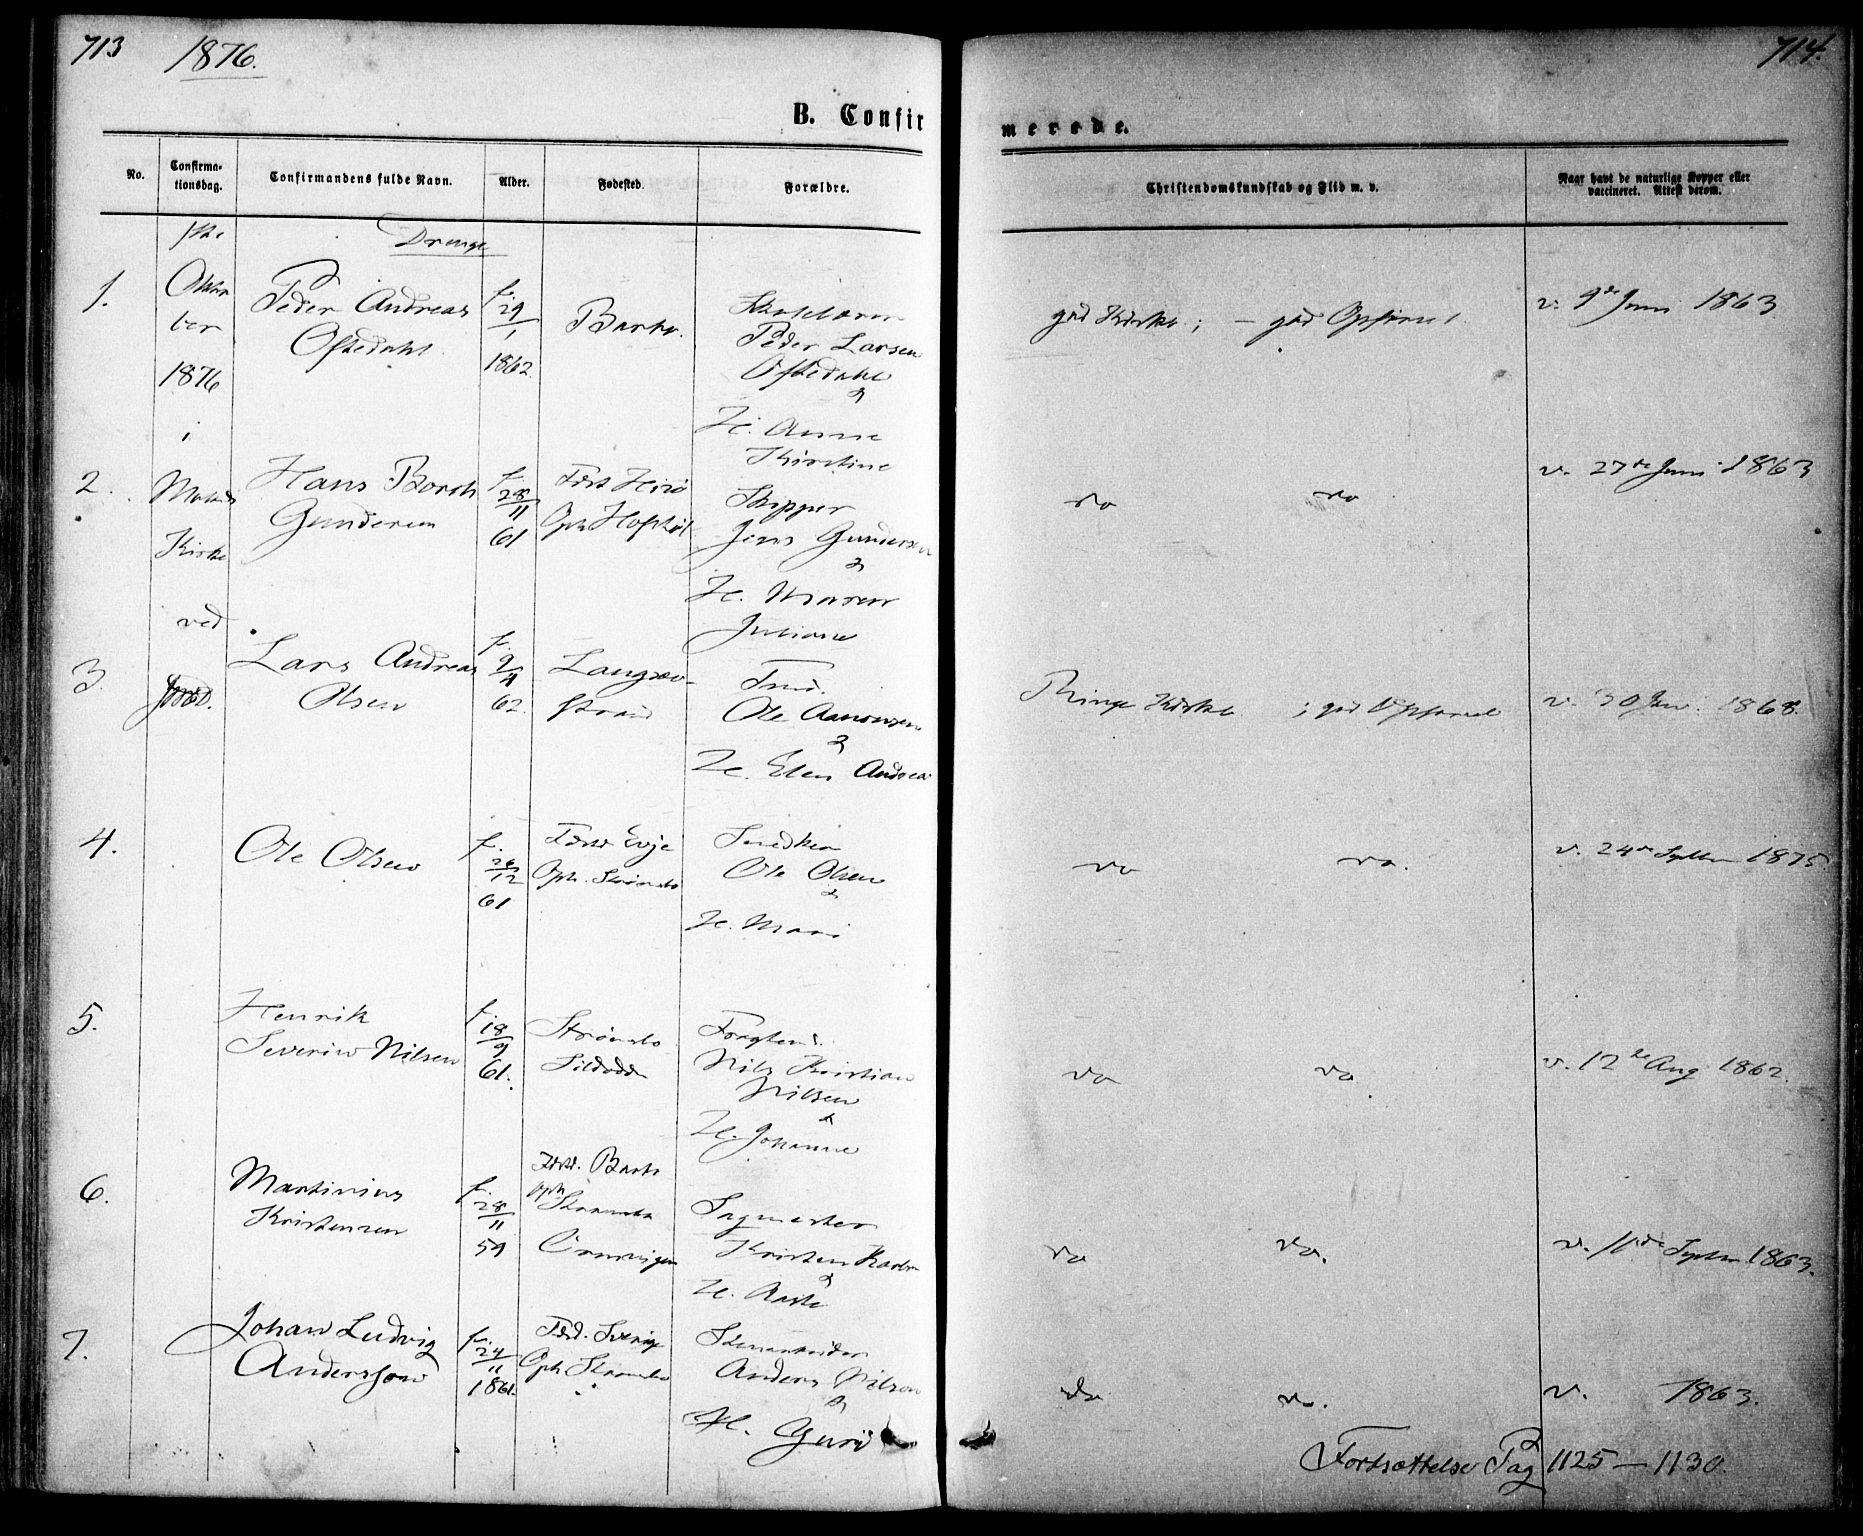 713
1876.
714.
B. Confirmerede.
No.
Confirmationsdag.
Confirmandens fulde Navn.
Alder.
Fødested.
Forældre.
Christendomskundskab og Flid m. v.
Naar havt de naturlige Kopper eller
vaccineret. Attest derom.
Drenge
1ste
Okto
ber
1876
i
Kirke
ved
1.
Peder Andreas
Oftedahl
f.
29/1
1862
Barbo.
Peder Larsen
Oftedahl
&
H. Anne
Kirstine
god Kdskb; – god Opførsel
v. 9de Juni 1863
2.
Hans Borch
Gundersen
f.
28/11
61
Fdst Hisø
Skipper
Jens Gundersen
&
H. Maren
Juliane
do do
v. 27de Juni 1863
3.
Lars Andreas
Olsen
f.
9/4
62
Langsæ-
strand
Tmd.
Ole Aanonsen
&
H. Elen Andrea
Ringe Kdskb ; god Opførsel
v. 30 1868.
4.
Ole Olsen
f.
26/12
61
Fdst Evje
Oph. Strømsbo
Snedker
Ole Olsen
&
H. Mari
do do.
v. 24de Septbr 1875.
5.
Henrik
Severin Nilsen
f.
18/9
61.
Strømsbo
Sildodden
Nils Kristian
Nilsen
&
H. Johanne
do do
v. 12te Aug 1862.
6.
Martinius
Kristensen
f.
28/11
59
Fdst. Barbo
oph
Strømsbo
Sagmester
Kristen
&
H.
do do.
v. 11de Septbr 1863.
7.
Johan Ludvig
Andersson
f.
24/11
1861.
Fdst. Sverig
Oph Strømsbo
Stenarbeider
Anders Nilson
&
H. Guri
do do.
v. 1863.
Fortsættelse Pag 1125 – 1130.